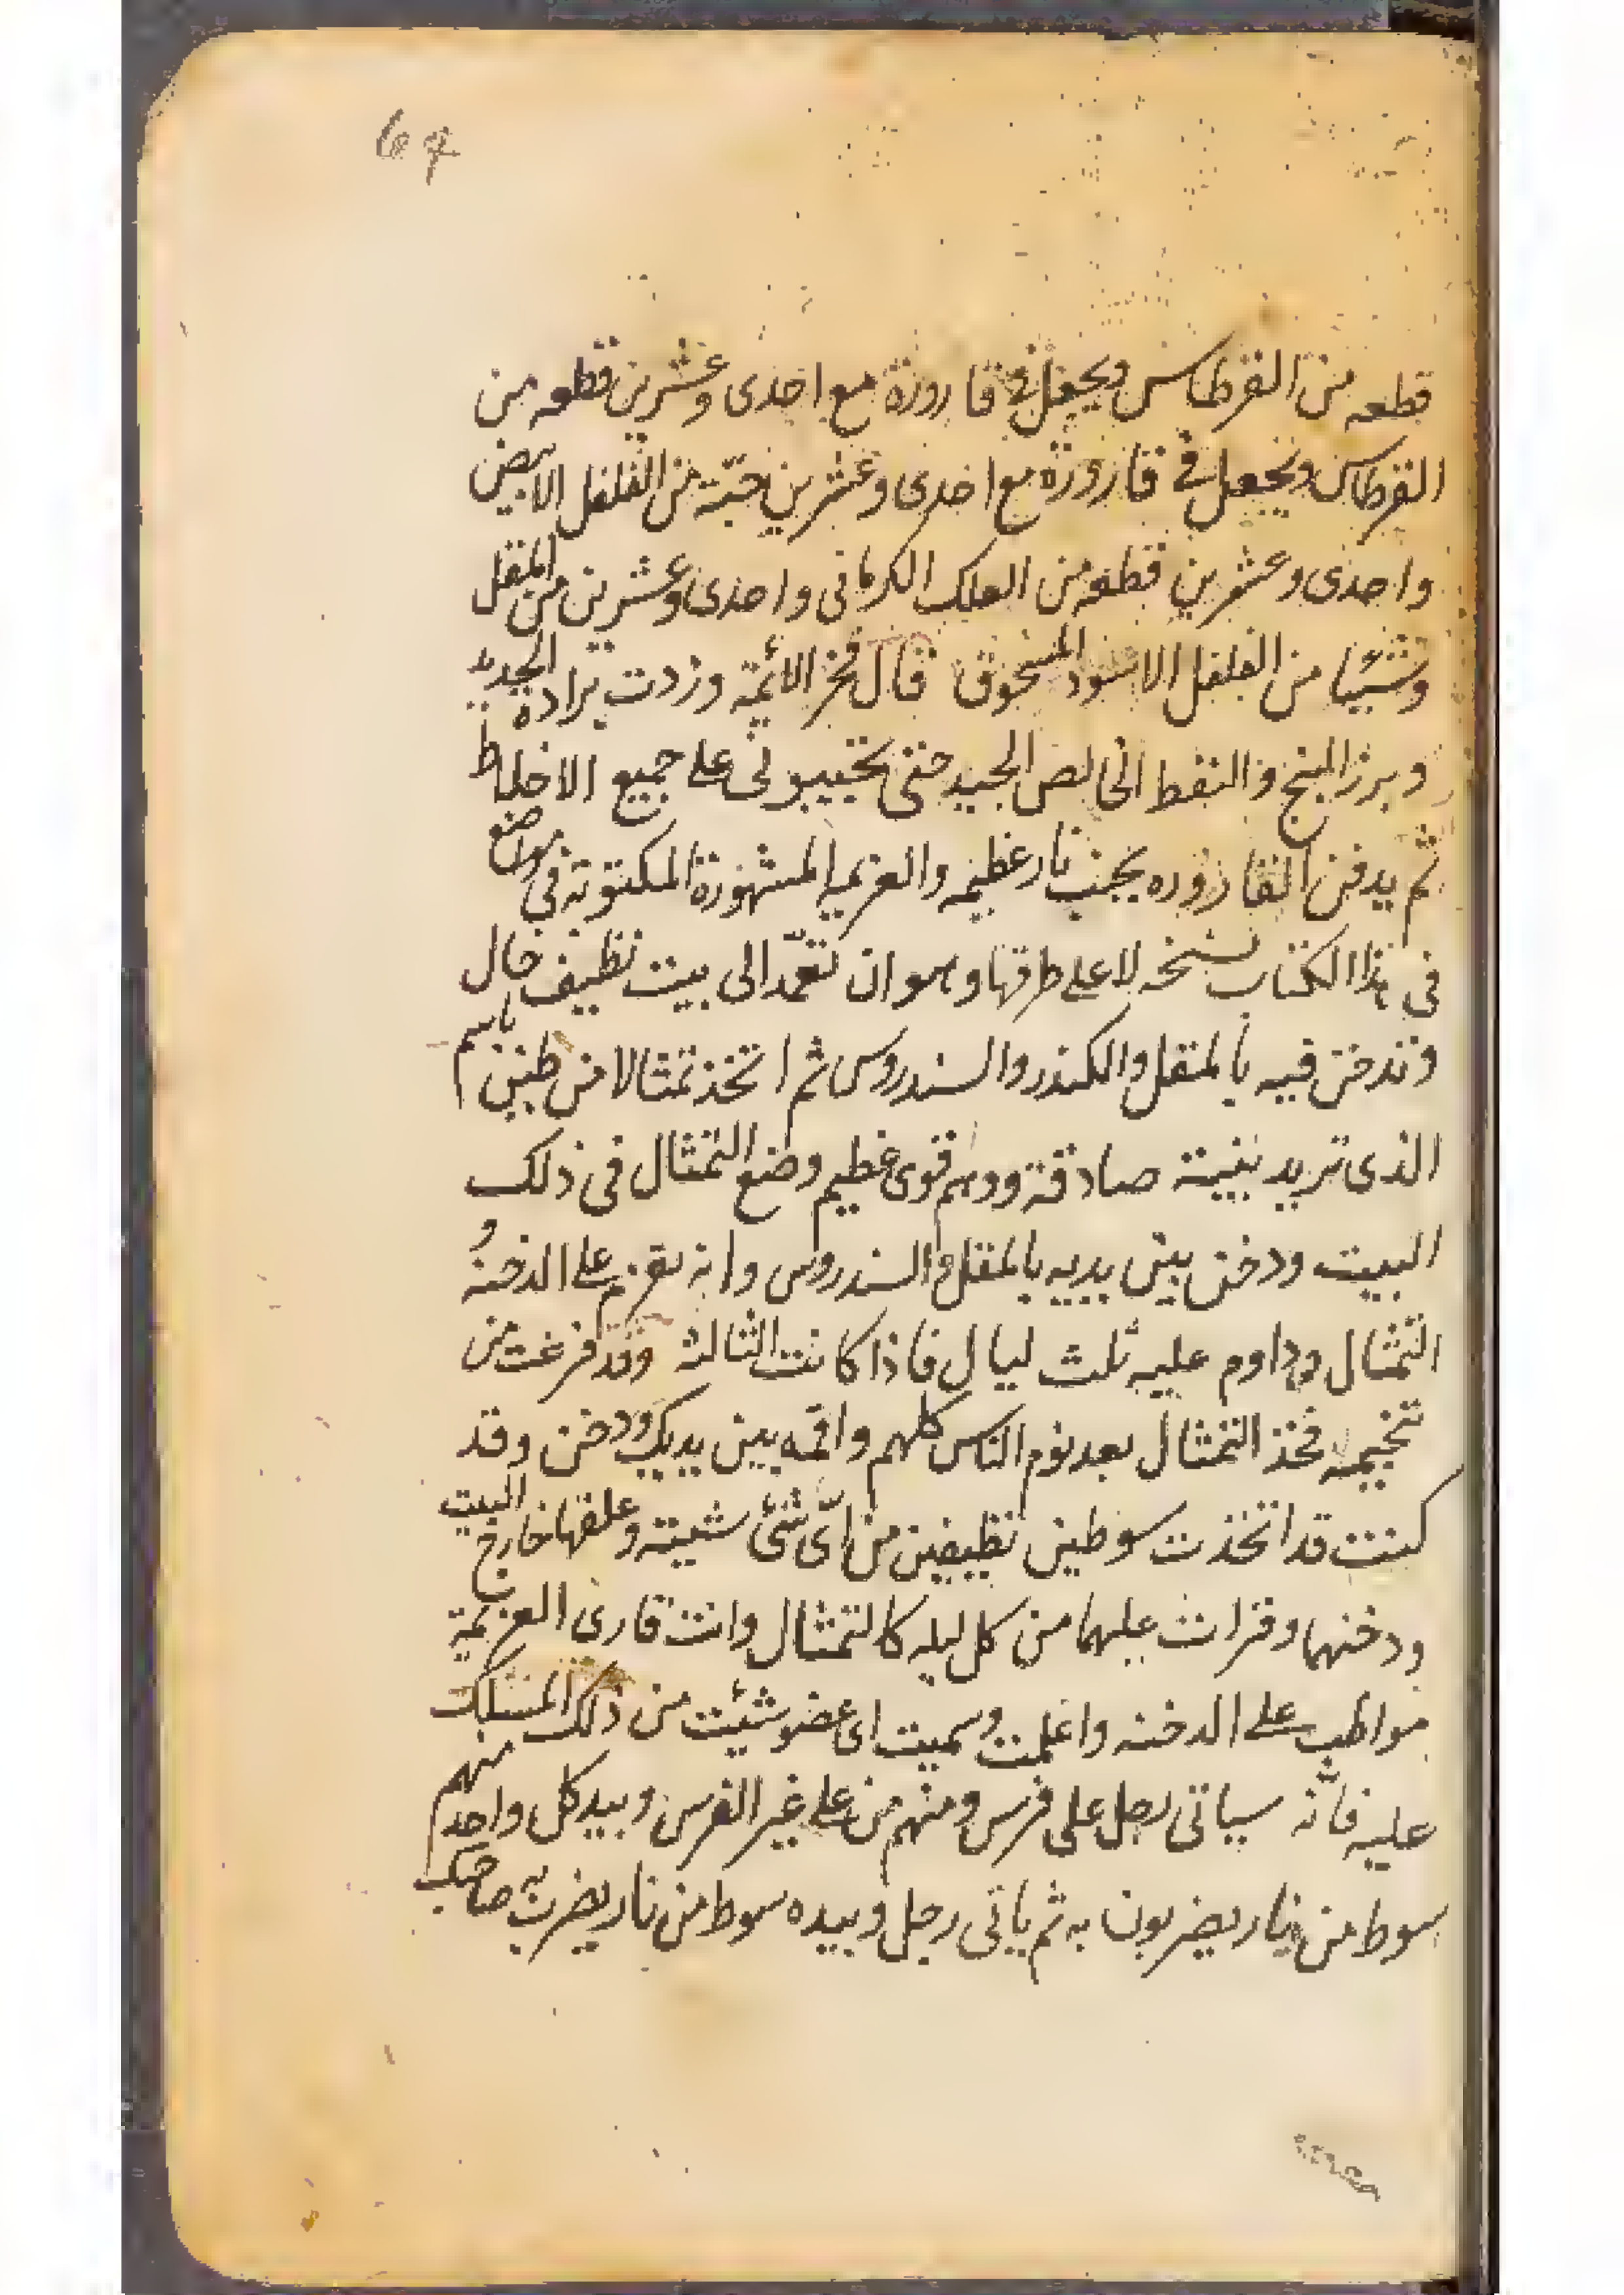 67
قطعه من القرطاس ويجعل فى قارورة مع احدى وعشرين قطعه من
القرطاس ويجعل فى قارورة مع احدى وعشرين حبّة من الفلفل الابيض
واحدى وعشرين قطعه من العلك الكرمانى واحدى وعشرين من المقل
وشيئا من الفلفل الاسود المسحوق قال فخر الائمة وزدت برادة الحديد
وبرز البنج والنفط الخالص الجيد حتى على جميع الاخلاط
ثم يدفن القاروره بجنب نار عظيمه والعزيمه المشهورة المكتوبة فى مواضع
فى هذا الكتاب نسخه لا على طرقها وهو ان تعمّد الى بيت نظيف خال
وتدخن فيه بالمقل والكندر والسندروس ثم اتخذ تمثالا من طين باسم
الذى تريد بنية صادقة ووهم قوى عظيم وضع التمثال فى ذلك
البيت ودخن بين يديه بالمقل والسندروس وانه تعزم على الدخنه و
التمثال وداوم عليه ثلث ليال فاذا كانت الثالثه وقد فرغت من
تنجيمه فخذ التمثال بعد نوم الناس كلهم واقمه بين يديك ودخن وقد
كنت قد اتخذت سوطين نظيفين من اىّ شئ شيته وعلقها خارج البيت
ودخنهما وقرات عليهما من كل ليله كالتمثال وانت قارى العزيمة
مواظب على الدخنه واعلمت وسميت اى عضو شيئت من ذلك
عليه فانّه سياتى رجل على فرس ومنهم من على غير الفرس وبيد كل واحد منهم
سوط من نار يضربون به ثم ياتى رجل وبيده سوط من نار يضرب به صاحبك